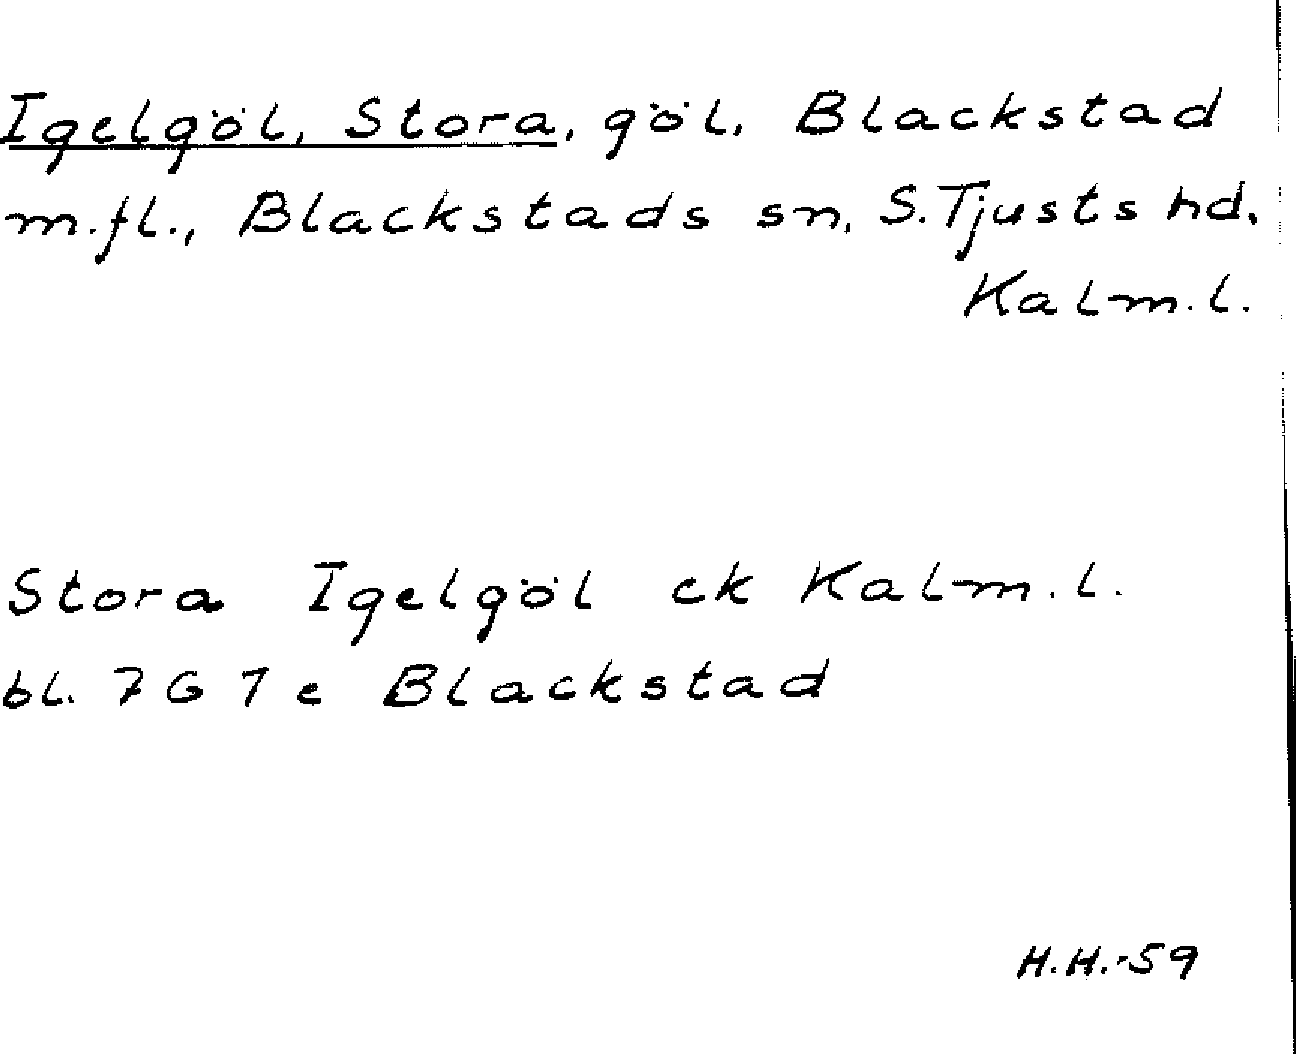 Igelgöl, Stora, göl, Blackstad
m.fl., Blackstads sn, S.Tjusts hd,
Kalm.l.
Stora Igelgöl ek Kalm.l.
bl. 7 G 1 e Blackstad
H.H.-59